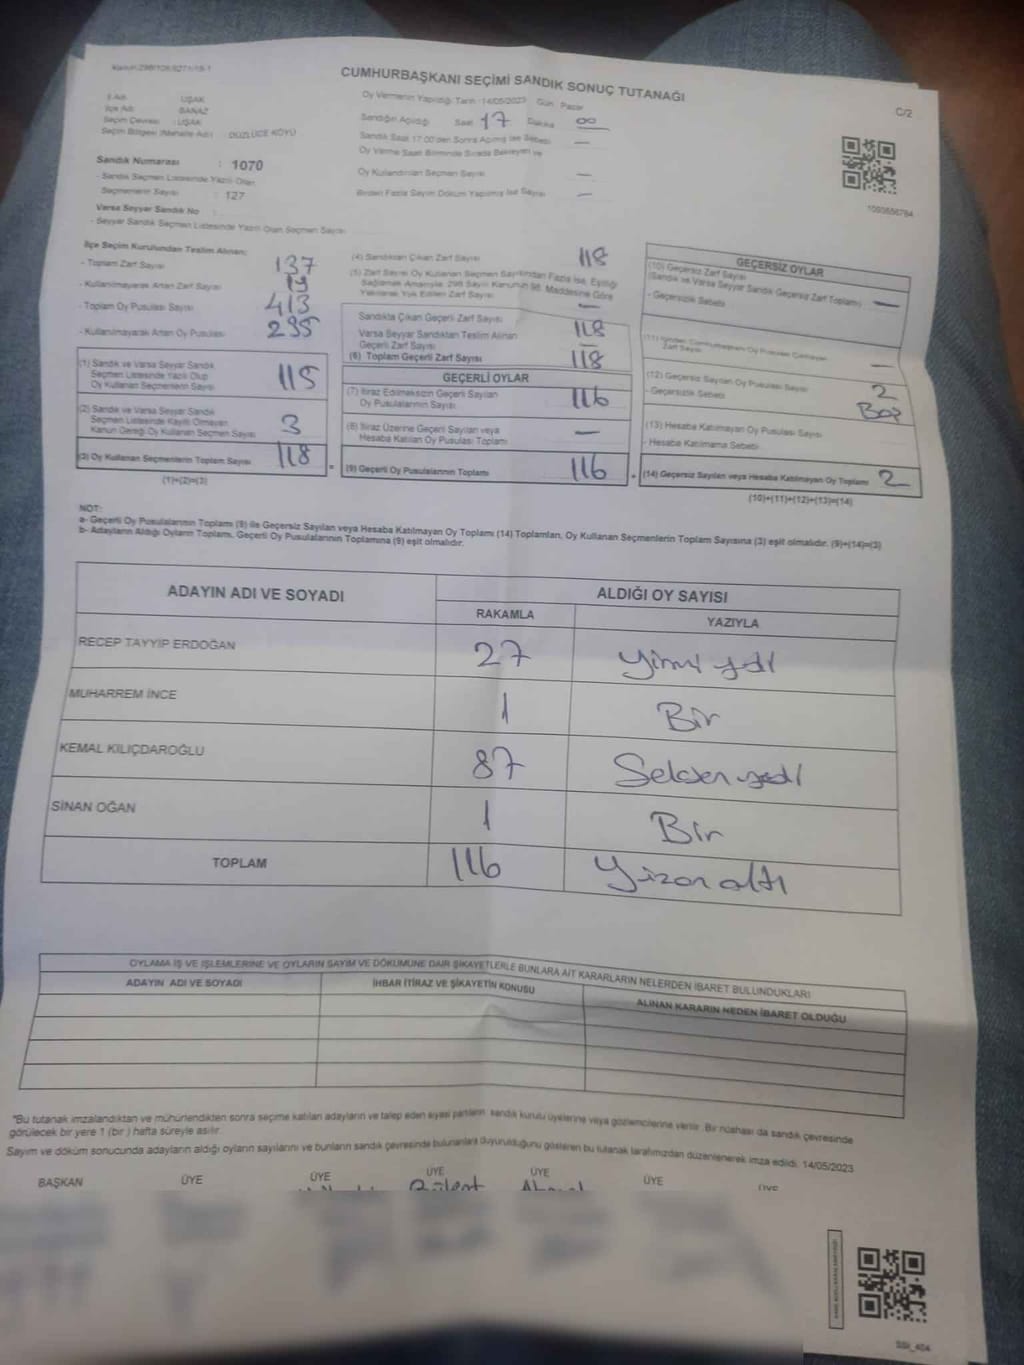 Kanun:298/108/6271/19-1
CUMHURBAŞKANI SEÇİMİ SANDIK SONUÇ TUTANAĞI
C/2
İl Adı : UŞAK
İlçe Adı : BANAZ
Seçim Çevresi : UŞAK
Seçim Bölgesi (Mahalle Adı) : DÜZLÜCE KÖYÜ
Sandık Numarası : 1070
- Sandık Seçmen Listesinde Yazılı Olan
Seçmenlerin Sayısı : 127
Varsa Seyyar Sandık No :
- Seyyar Sandık Seçmen Listesinde Yazılı Olan Seçmen Sayısı
Oy Vermenin Yapıldığı Tarih :14/05/2023 Gün Pazar
Sandığın Açıldığı Saat 17 Dakika 00
Sandık Saat 17:00'den Sonra Açılmış İse Sebebi —
Oy Verme Saati Bitiminde Sırada Bekleyen ve
Oy Kullandırılan Seçmen Sayısı —
Birden Fazla Sayım Döküm Yapılmış İse Sayısı —
İlçe Seçim Kurulundan Teslim Alınan;
- Toplam Zarf Sayısı 137
- Kullanılmayarak Artan Zarf Sayısı 19
- Toplam Oy Pusulası Sayısı 413
- Kullanılmayarak Artan Oy Pusulası 295
(1) Sandık ve Varsa Seyyar Sandık
Seçmen Listesinde Yazılı Olup
Oy Kullanan Seçmenlerin Sayısı 115
(2) Sandık ve Varsa Seyyar Sandık
Seçmen Listesinde Kayıtlı Olmayan
Kanun Gereği Oy Kullanan Seçmen Sayısı 3
(3) Oy Kullanan Seçmenlerin Toplam Sayısı 118
(1)+(2)=(3)
(4) Sandıktan Çıkan Zarf Sayısı 118
(5) Zarf Sayısı Oy Kullanan Seçmen Sayısından Fazla İse, Eşitliği
Sağlamak Amacıyla, 298 Sayılı Kanunun 98. Maddesine Göre
Yakılarak Yok Edilen Zarf Sayısı —
Sandıkta Çıkan Geçerli Zarf Sayısı 118
Varsa Seyyar Sandıktan Teslim Alınan
Geçerli Zarf Sayısı —
(6) Toplam Geçerli Zarf Sayısı 118
GEÇERLİ OYLAR
(7) İtiraz Edilmeksizin Geçerli Sayılan
Oy Pusulalarının Sayısı 116
(8) İtiraz Üzerine Geçerli Sayılan veya
Hesaba Katılan Oy Pusulası Toplamı —
= (9) Geçerli Oy Pusulalarının Toplamı 116 +
1093656784
GEÇERSİZ OYLAR
(10) Geçersiz Zarf Sayısı
(Sandık ve Varsa Seyyar Sandık Geçersiz Zarf Toplamı) —
- Geçersizlik Sebebi
Zarf Sayısı —
(12) Geçersiz Sayılan Oy Pusulası Sayısı 2
- Geçersizlik Sebebi Boş
(13) Hesaba Katılmayan Oy Pusulası Sayısı
- Hesaba Katılmama Sebebi
(14) Geçersiz Sayılan veya Hesaba Katılmayan Oy Toplamı 2
(10)+(11)+(12)+(13)=(14)
NOT:
a- Geçerli Oy Pusulalarının Toplamı (9) ile Geçersiz Sayılan veya Hesaba Katılmayan Oy Toplamı (14) Toplamları, Oy Kullanan Seçmenlerin Toplam Sayısına (3) eşit olmalıdır. (9)+(14)=(3)
b- Adayların Aldığı Oyların Toplamı, Geçerli Oy Pusulalarının Toplamına (9) eşit olmalıdır.
ADAYIN ADI VE SOYADI ALDIĞI OY SAYISI
RAKAMLA YAZIYLA
RECEP TAYYİP ERDOĞAN 27 Yirmi yedi
MUHARREM İNCE 1 Bir
KEMAL KILIÇDAROĞLU 87 Seksen yedi
SİNAN OĞAN 1 Bir
TOPLAM 116 Yüzon altı
OYLAMA İŞ VE İŞLEMLERİNE VE OYLARIN SAYIM VE DÖKÜMÜNE DAİR ŞİKAYETLERLE BUNLARA AİT KARARLARIN NELERDEN İBARET BULUNDUKLARI
ADAYIN ADI VE SOYADI İHBAR İTİRAZ VE ŞİKAYETİN KONUSU ALINAN KARARIN NEDEN İBARET OLDUĞU
"Bu tutanak imzalandıktan ve mühürlendikten sonra seçime katılan adayların ve talep eden siyasi partilerin sandık kurulu üyelerine veya gözlemcilerine verilir. Bir nüshası da sandık çevresinde
görülecek bir yere 1 (bir) hafta süreyle asılır.
Sayım ve döküm sonucunda adayların aldığı oyların sayılarını ve bunların sandık çevresinde bulunanlara duyurulduğunu gösteren bu tutanak tarafımızdan düzenlenerek imza edildi. 14/05/2023
BAŞKAN ÜYE ÜYE ÜYE ÜYE ÜYE ÜYE
Bülent Ahmet
SSI_404